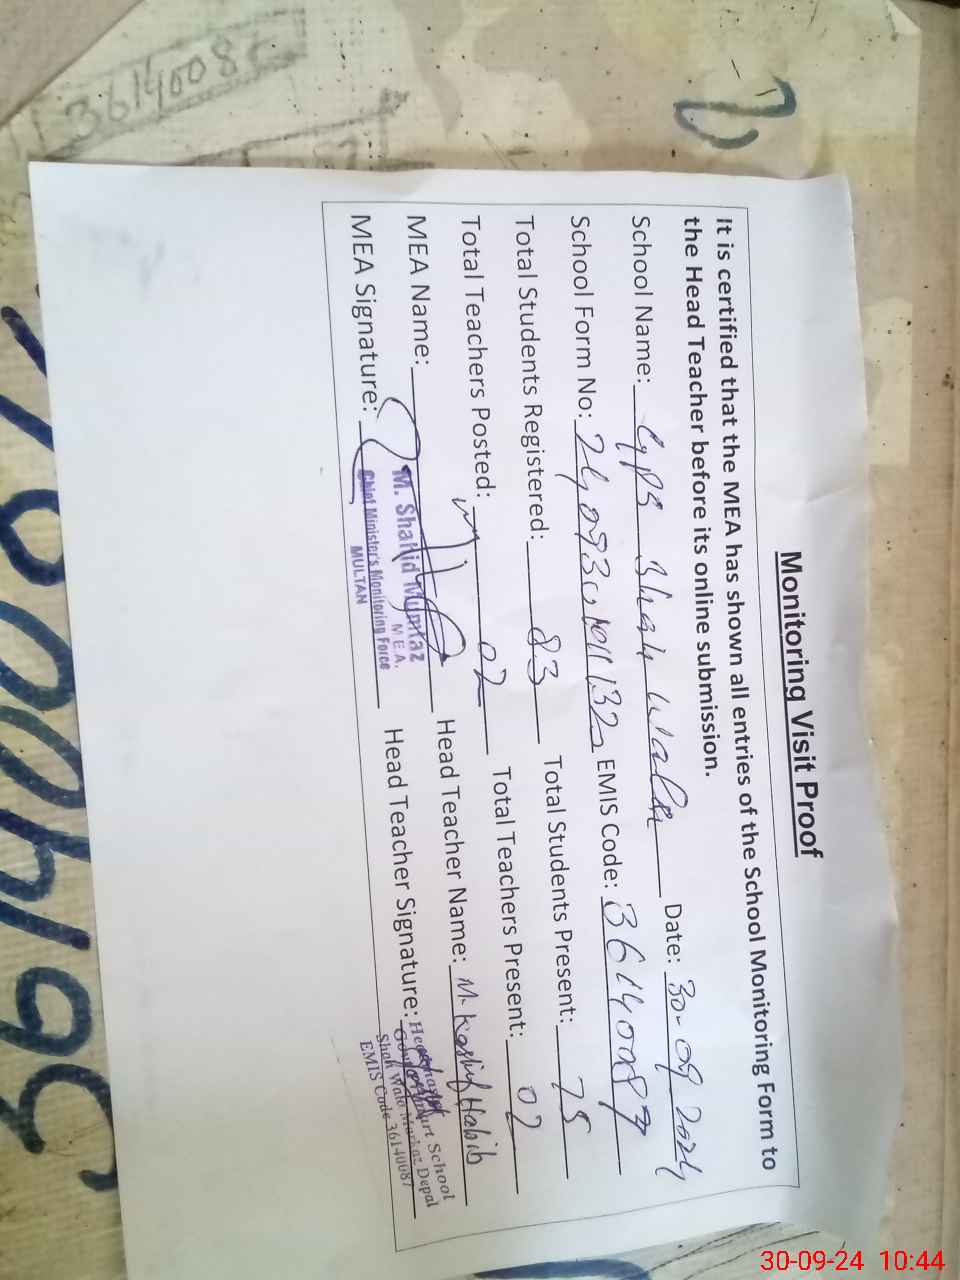 Monitoring Visit Proof
It is certified that the MEA has shown all entries of the School Monitoring Form to
the Head Teacher before its online submission.
School Name: GPS Shah Wala Date: 30-09-2024
School Form No: EMIS Code: 36140087
Total Students Registered: 83 Total Students Present: 75
Total Teachers Posted: 02 Total Teachers Present: 02
MEA Name: Head Teacher Name: M. Kashif Habib
MEA Signature: Head Teacher Signature:
M. Shahid Mumtaz
M.E.A.
Chief Minister's Monitoring Force
MULTAN
School
Shah Wala Markaz Depal
EMIS Code 36140087
36140087
30-09-24 10:44